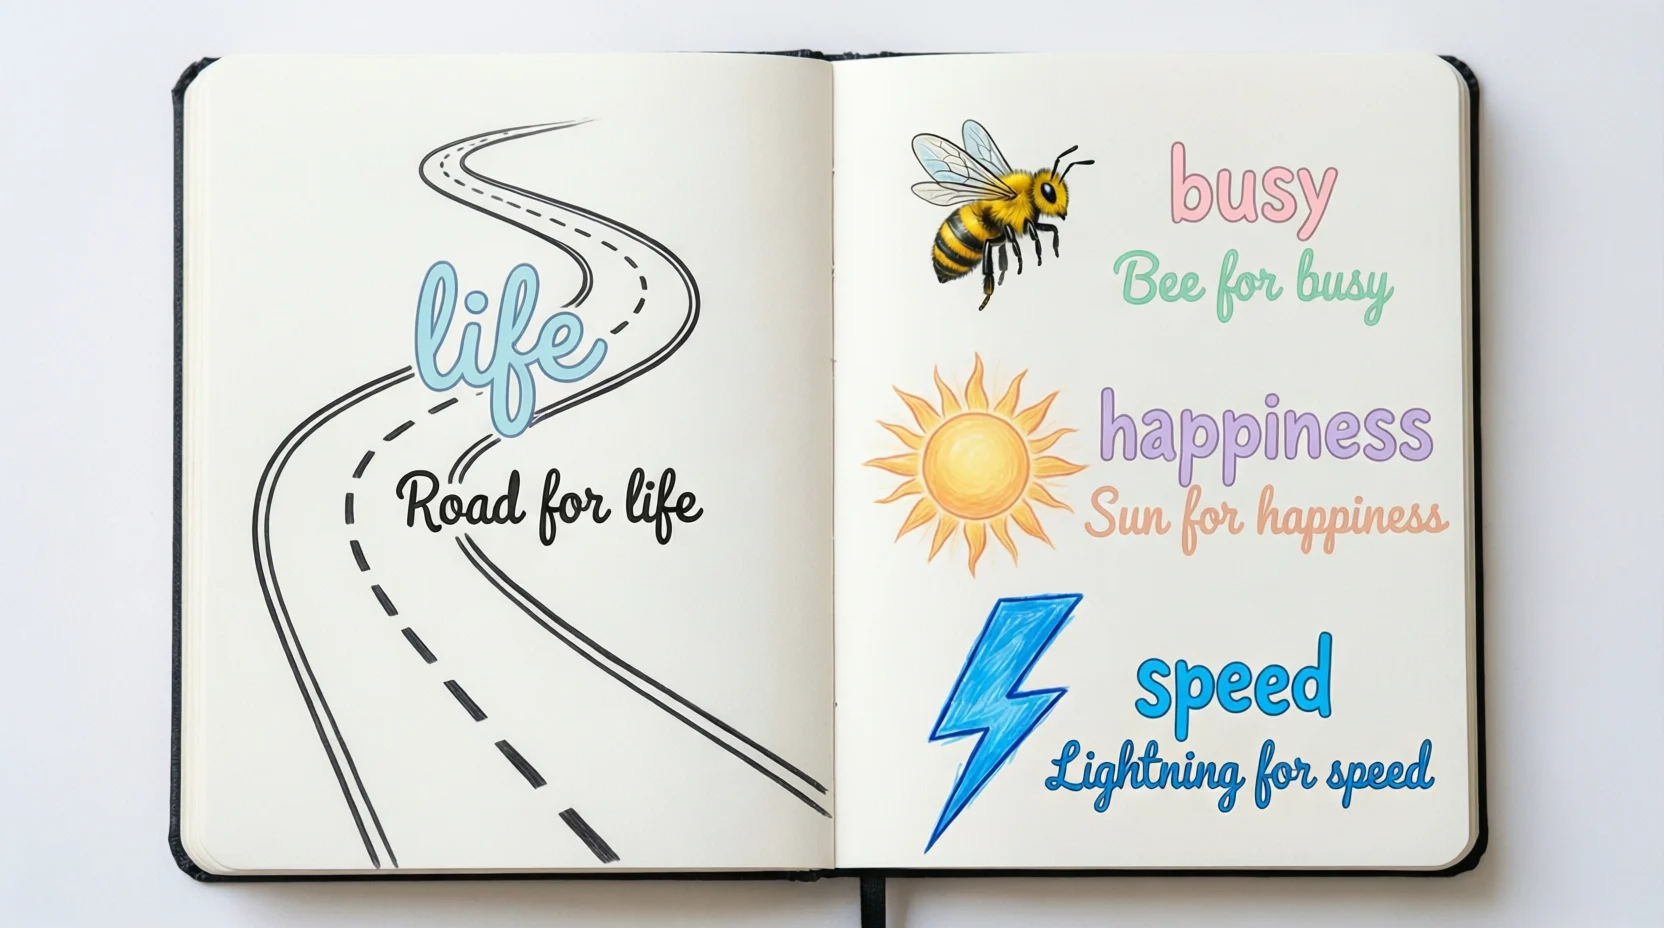 life
Road for life
busy
Bee for busy
happiness
Sun for happiness
speed
Lightning for speed